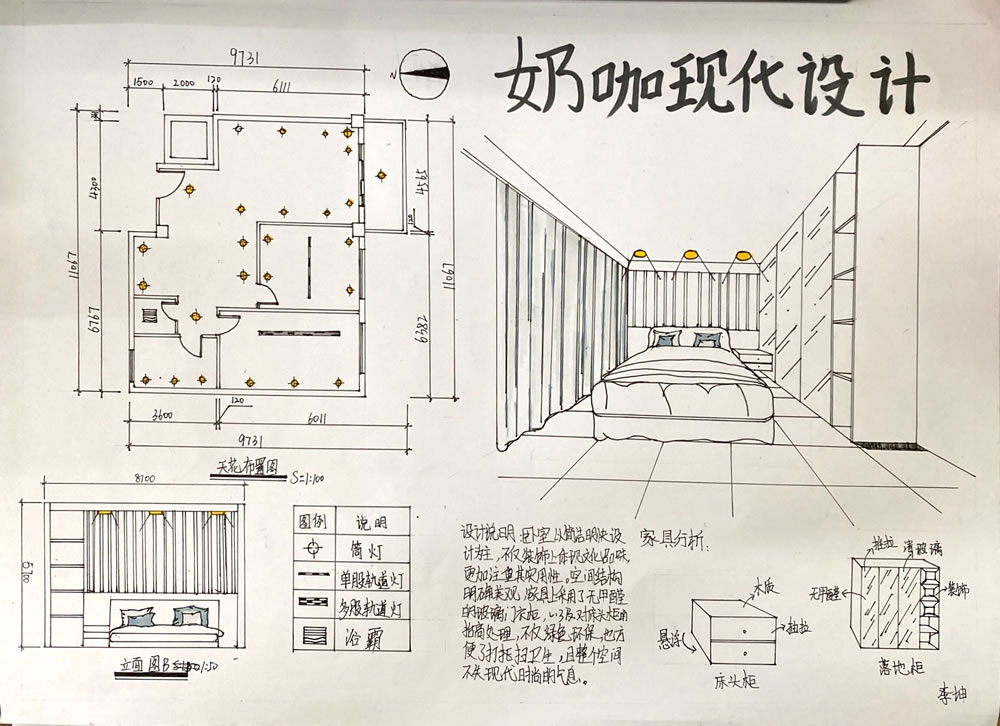 奶咖现代设计
9731
1500 2000 120 6111
N
4300
11067
6767
5954
120
11067
6382
3600 120 6011
9731
天花布置图 S=1:100
8700
5700
立面图B 1:50
图例 说明
筒灯
单股轨道灯
多股轨道灯
浴霸
设计说明:卧室以简洁明快设
计为主,不仅装饰上体现文化品味,
更加注重其实用性。空间结构
明确美观,家具上采用了无甲醛
的玻璃门衣柜,以及对床头柜的
抬高处理,不仅绿色环保,也方
便了打扫卫生,且整个空间
不失现代时尚的气息。
家具分析:
木质
抽拉
悬浮
床头柜
推拉 清玻璃
无甲醛
装饰
落地柜
李坤